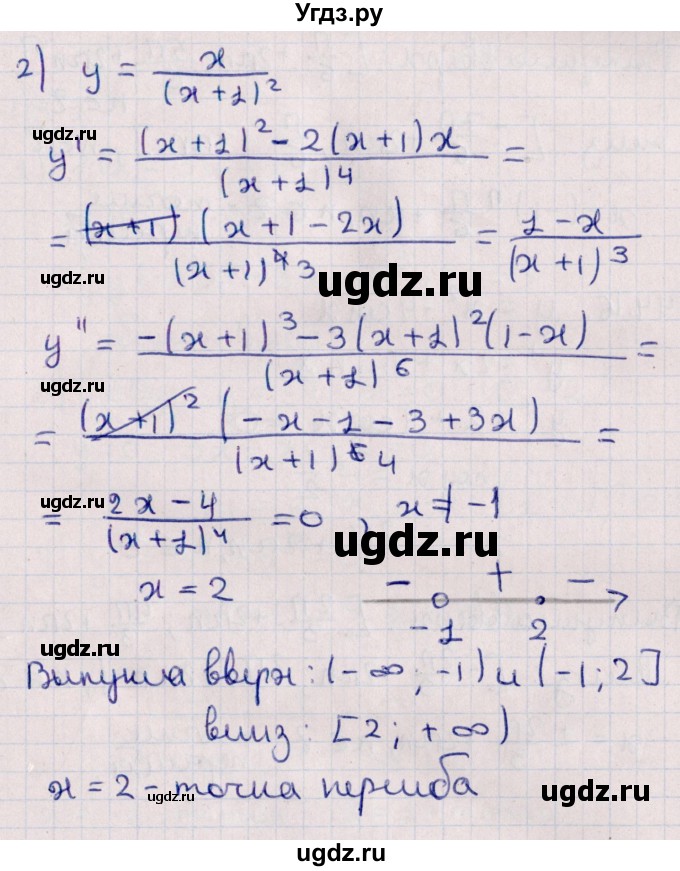 Угдз.ру
2) y = x / (x+1)²
ugdz.ru
y' = ((x+1)² - 2(x+1)x) / (x+1)⁴ =
= (x+1)(x+1-2x) / (x+1)⁴ 3 = (1-x) / (x+1)³
ugdz.ru ugdz.ru ugdz.ru
y'' = (-(x+1)³ - 3(x+1)²(1-x)) / (x+1)⁶ =
ugdz.ru
= (x+1)²(-x-1-3+3x) / (x+1)⁶ 4 =
ugdz.ru
= (2x-4) / (x+1)⁴ = 0 , x ≠ -1
ugdz.ru ugdz.ru
x = 2 - + -
-1 2
ugdz.ru
Выпукла вверх: (-∞; -1) и (-1; 2]
вниз: [2; +∞)
ugdz.ru
x = 2 - точка перегиба
ugdz.ru ugdz.ru
ugdz.ru